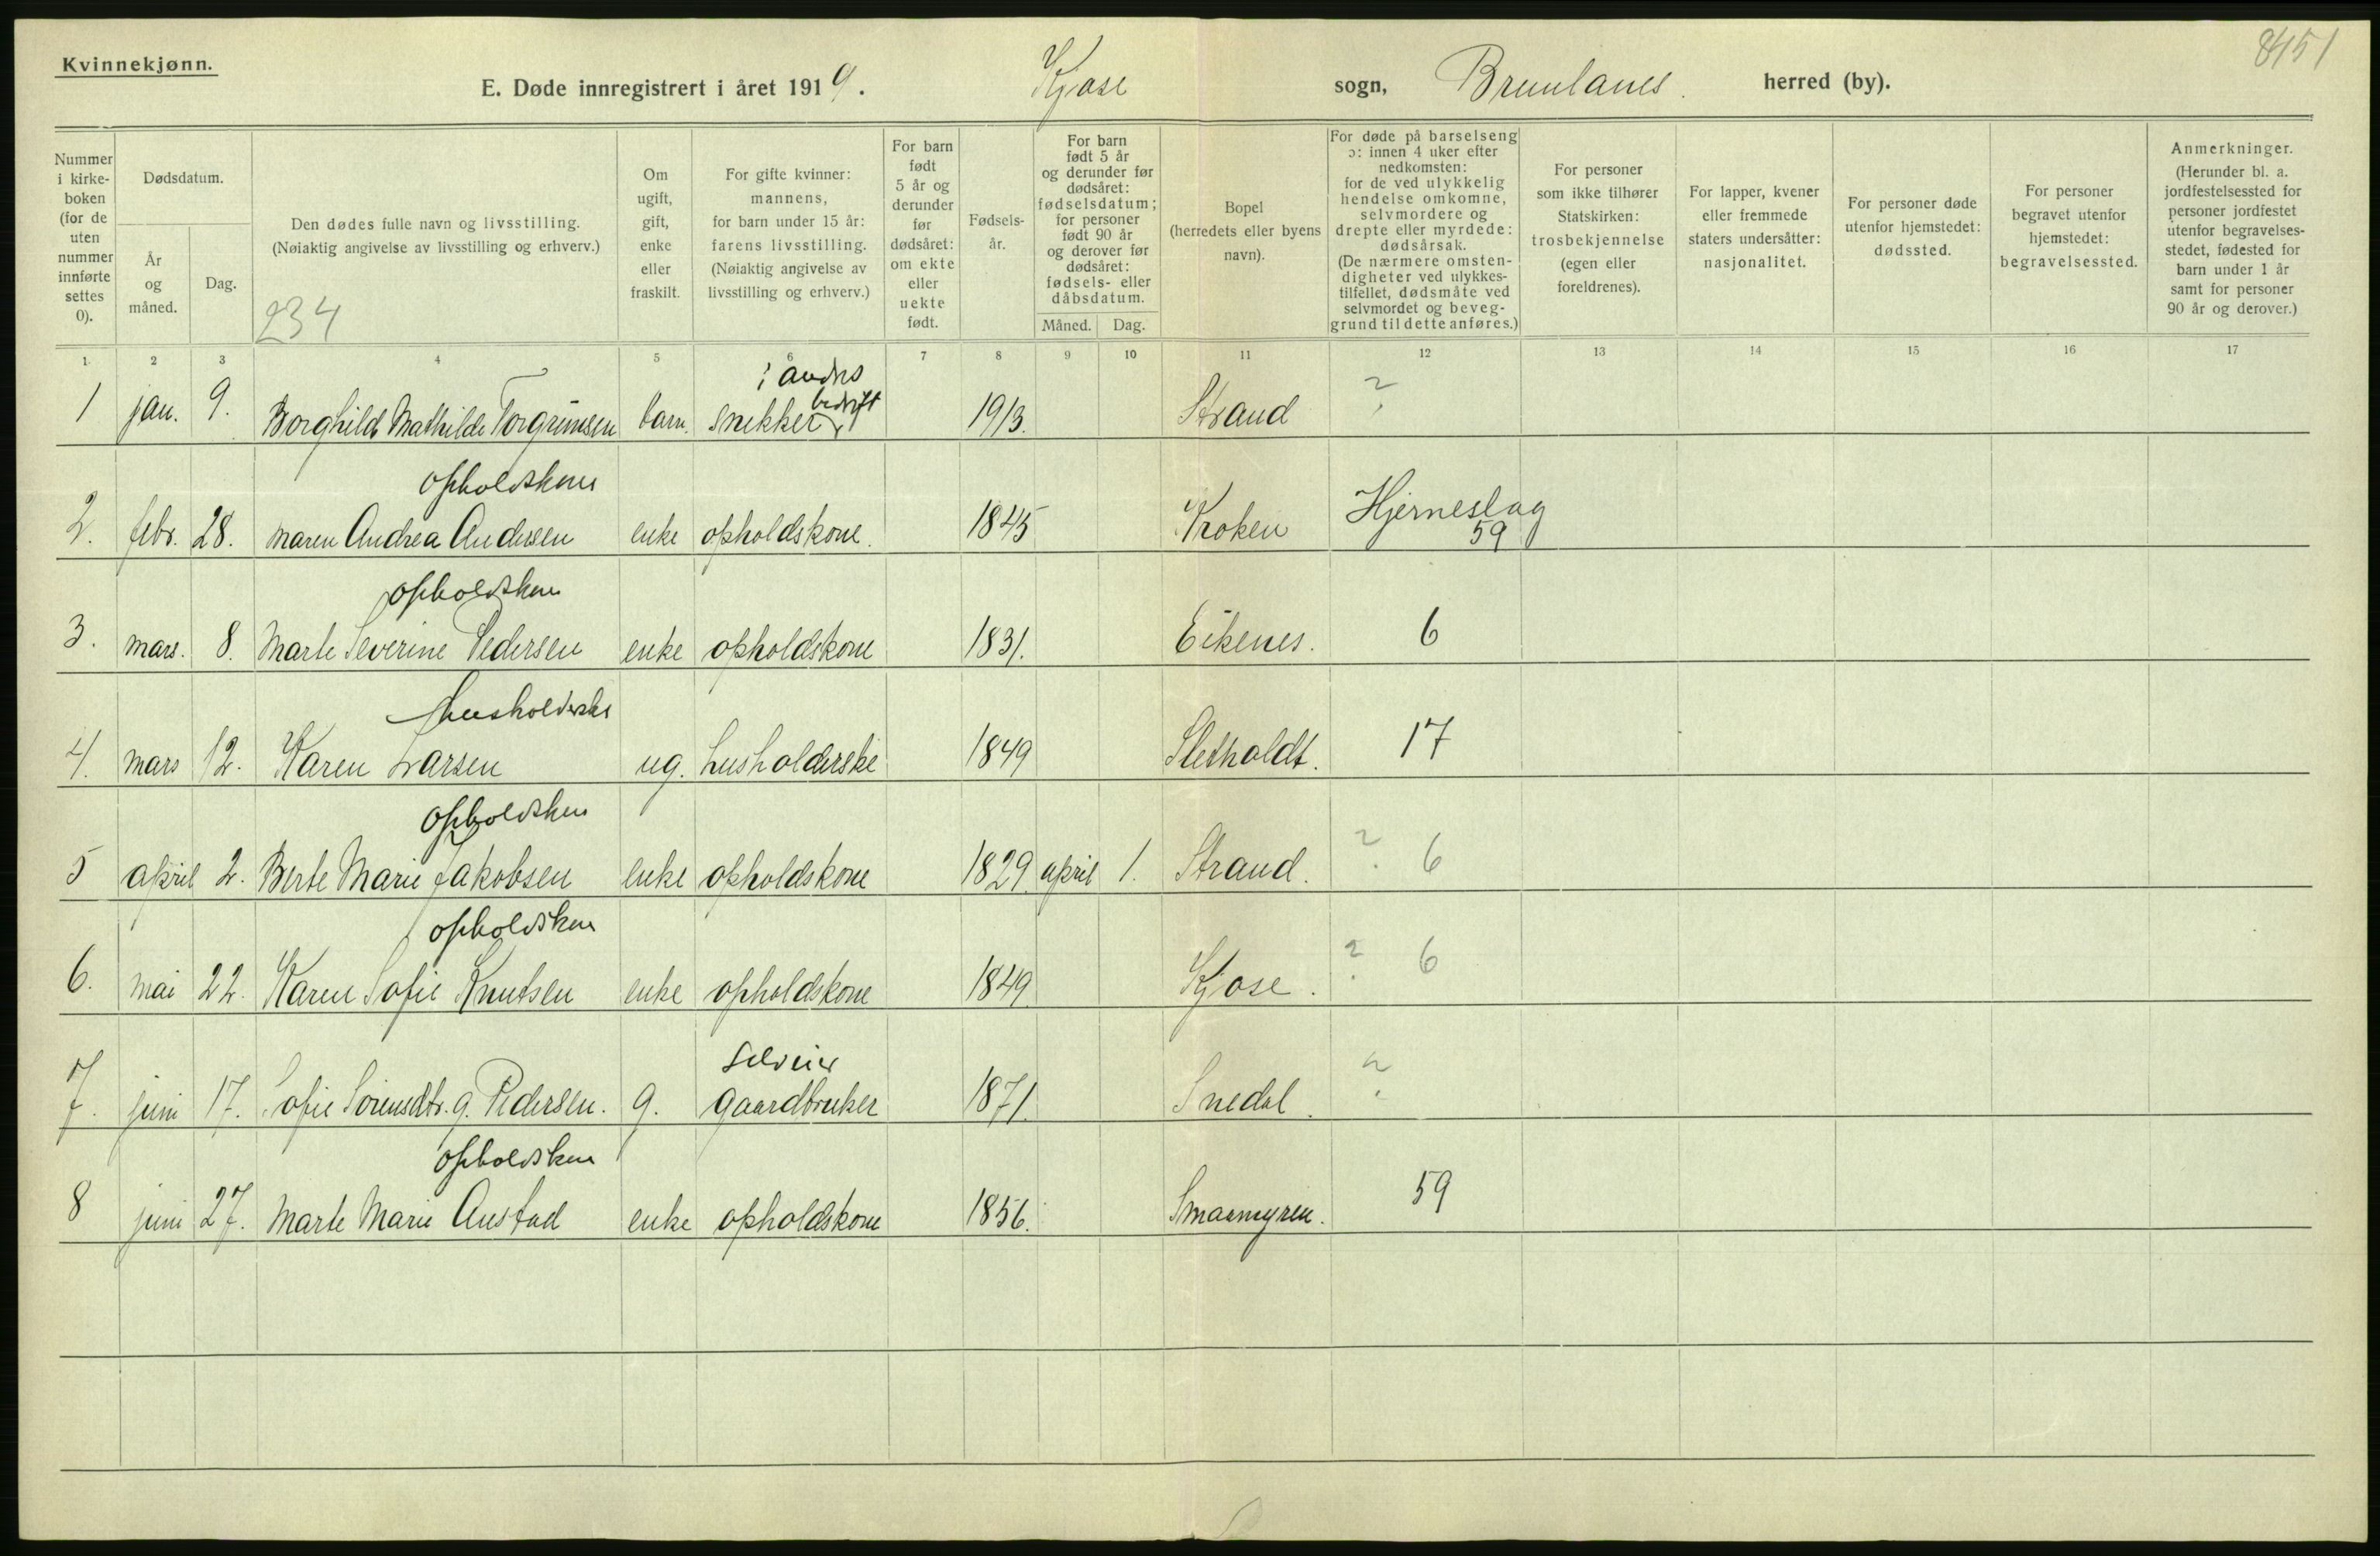 Kvinnekjønn.
8451
E. Døde innregistrert i året 1919. Kjose sogn, Brunlanes. herred (by).
Nummer i kirke-boken (for de uten nummer innførte settes 0).
Dødsdatum.
År og måned.
Dag.
Den dødes fulle navn og livsstilling.
(Nøiaktig angivelse av livsstilling og erhverv.)
234
Om ugift, gift, enke eller fraskilt.
For gifte kvinner: mannens, for barn under 15 år: farens livsstilling. (Nøiaktig angivelse av livsstilling og erhverv.)
For barn født 5 år og derunder før dødsåret: om ekte eller uekte født.
Fødsels-år.
For barn født 5 år og derunder før dødsåret: fødselsdatum; for personer født 90 år og derover før dødsåret: fødsels- eller dåbsdatum.
Måned. Dag.
Bopel (herredets eller byens navn).
For døde på barselseng ɔ: innen 4 uker efter nedkomsten: for de ved ulykkelig hendelse omkomne, selvmordere og drepte eller myrdede: dødsårsak. (De nærmere omsten-digheter ved ulykkes-tilfellet, dødsmåte ved selvmordet og beveg-grund til dette anføres.)
For personer som ikke tilhører Statskirken: trosbekjennelse (egen eller foreldrenes).
For lapper, kvener eller fremmede staters undersåtter: nasjonalitet.
For personer døde utenfor hjemstedet: dødssted.
For personer begravet utenfor hjemstedet: begravelsessted.
Anmerkninger. (Herunder bl. a. jordfestelsessted for personer jordfestet utenfor begravelses-stedet, fødested for barn under 1 år samt for personer 90 år og derover.)
1 2 3 4 5 6 7 8 9 10 11 12 13 14 15 16 17
i andres bedrift
1 jan. 9. Borghild Mathilde Torgrimsen barn. snekker 1913. Strand ?
opholdskone
2. febr. 28. Maren Andrea Andersen enke opholdskone. 1845 Kroken Hjerneslag 59
opholdskone
3. mars. 8. Marte Severine Pedersen enke opholdskone 1831. Eikenes. 6
husholderske
4. mars 12. Karen Larsen ug. husholderske 1849 Sletholdt. 17
opholdskone
5 april 2. Berte Marie Jakobsen enke opholdskone 1829. april 1. Strand. ? 6
opholdskone
6. mai 22. Karen Sofie Knutsen enke opholdskone 1849 Kjose. ? 6
selveier
7. juni 17. Sofie Sørensdtr. g. Pedersen. g. gaardbruker 1871. Snedal. ?
opholdskone
8 juni 27. Marte Marie Austad enke opholdskone 1856. Smaamyren. 59